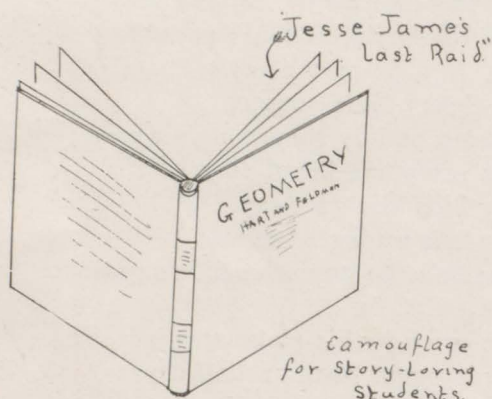 "Jesse James
Last Raid."
GEOMETRY
HART AND FELDMAN
Camouflage
for Story-Loving
Students.